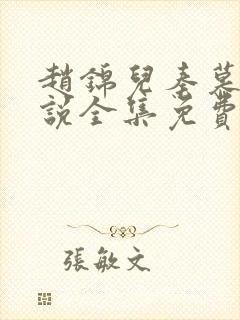 趙錦兒秦慕
說全集免費
張敏文